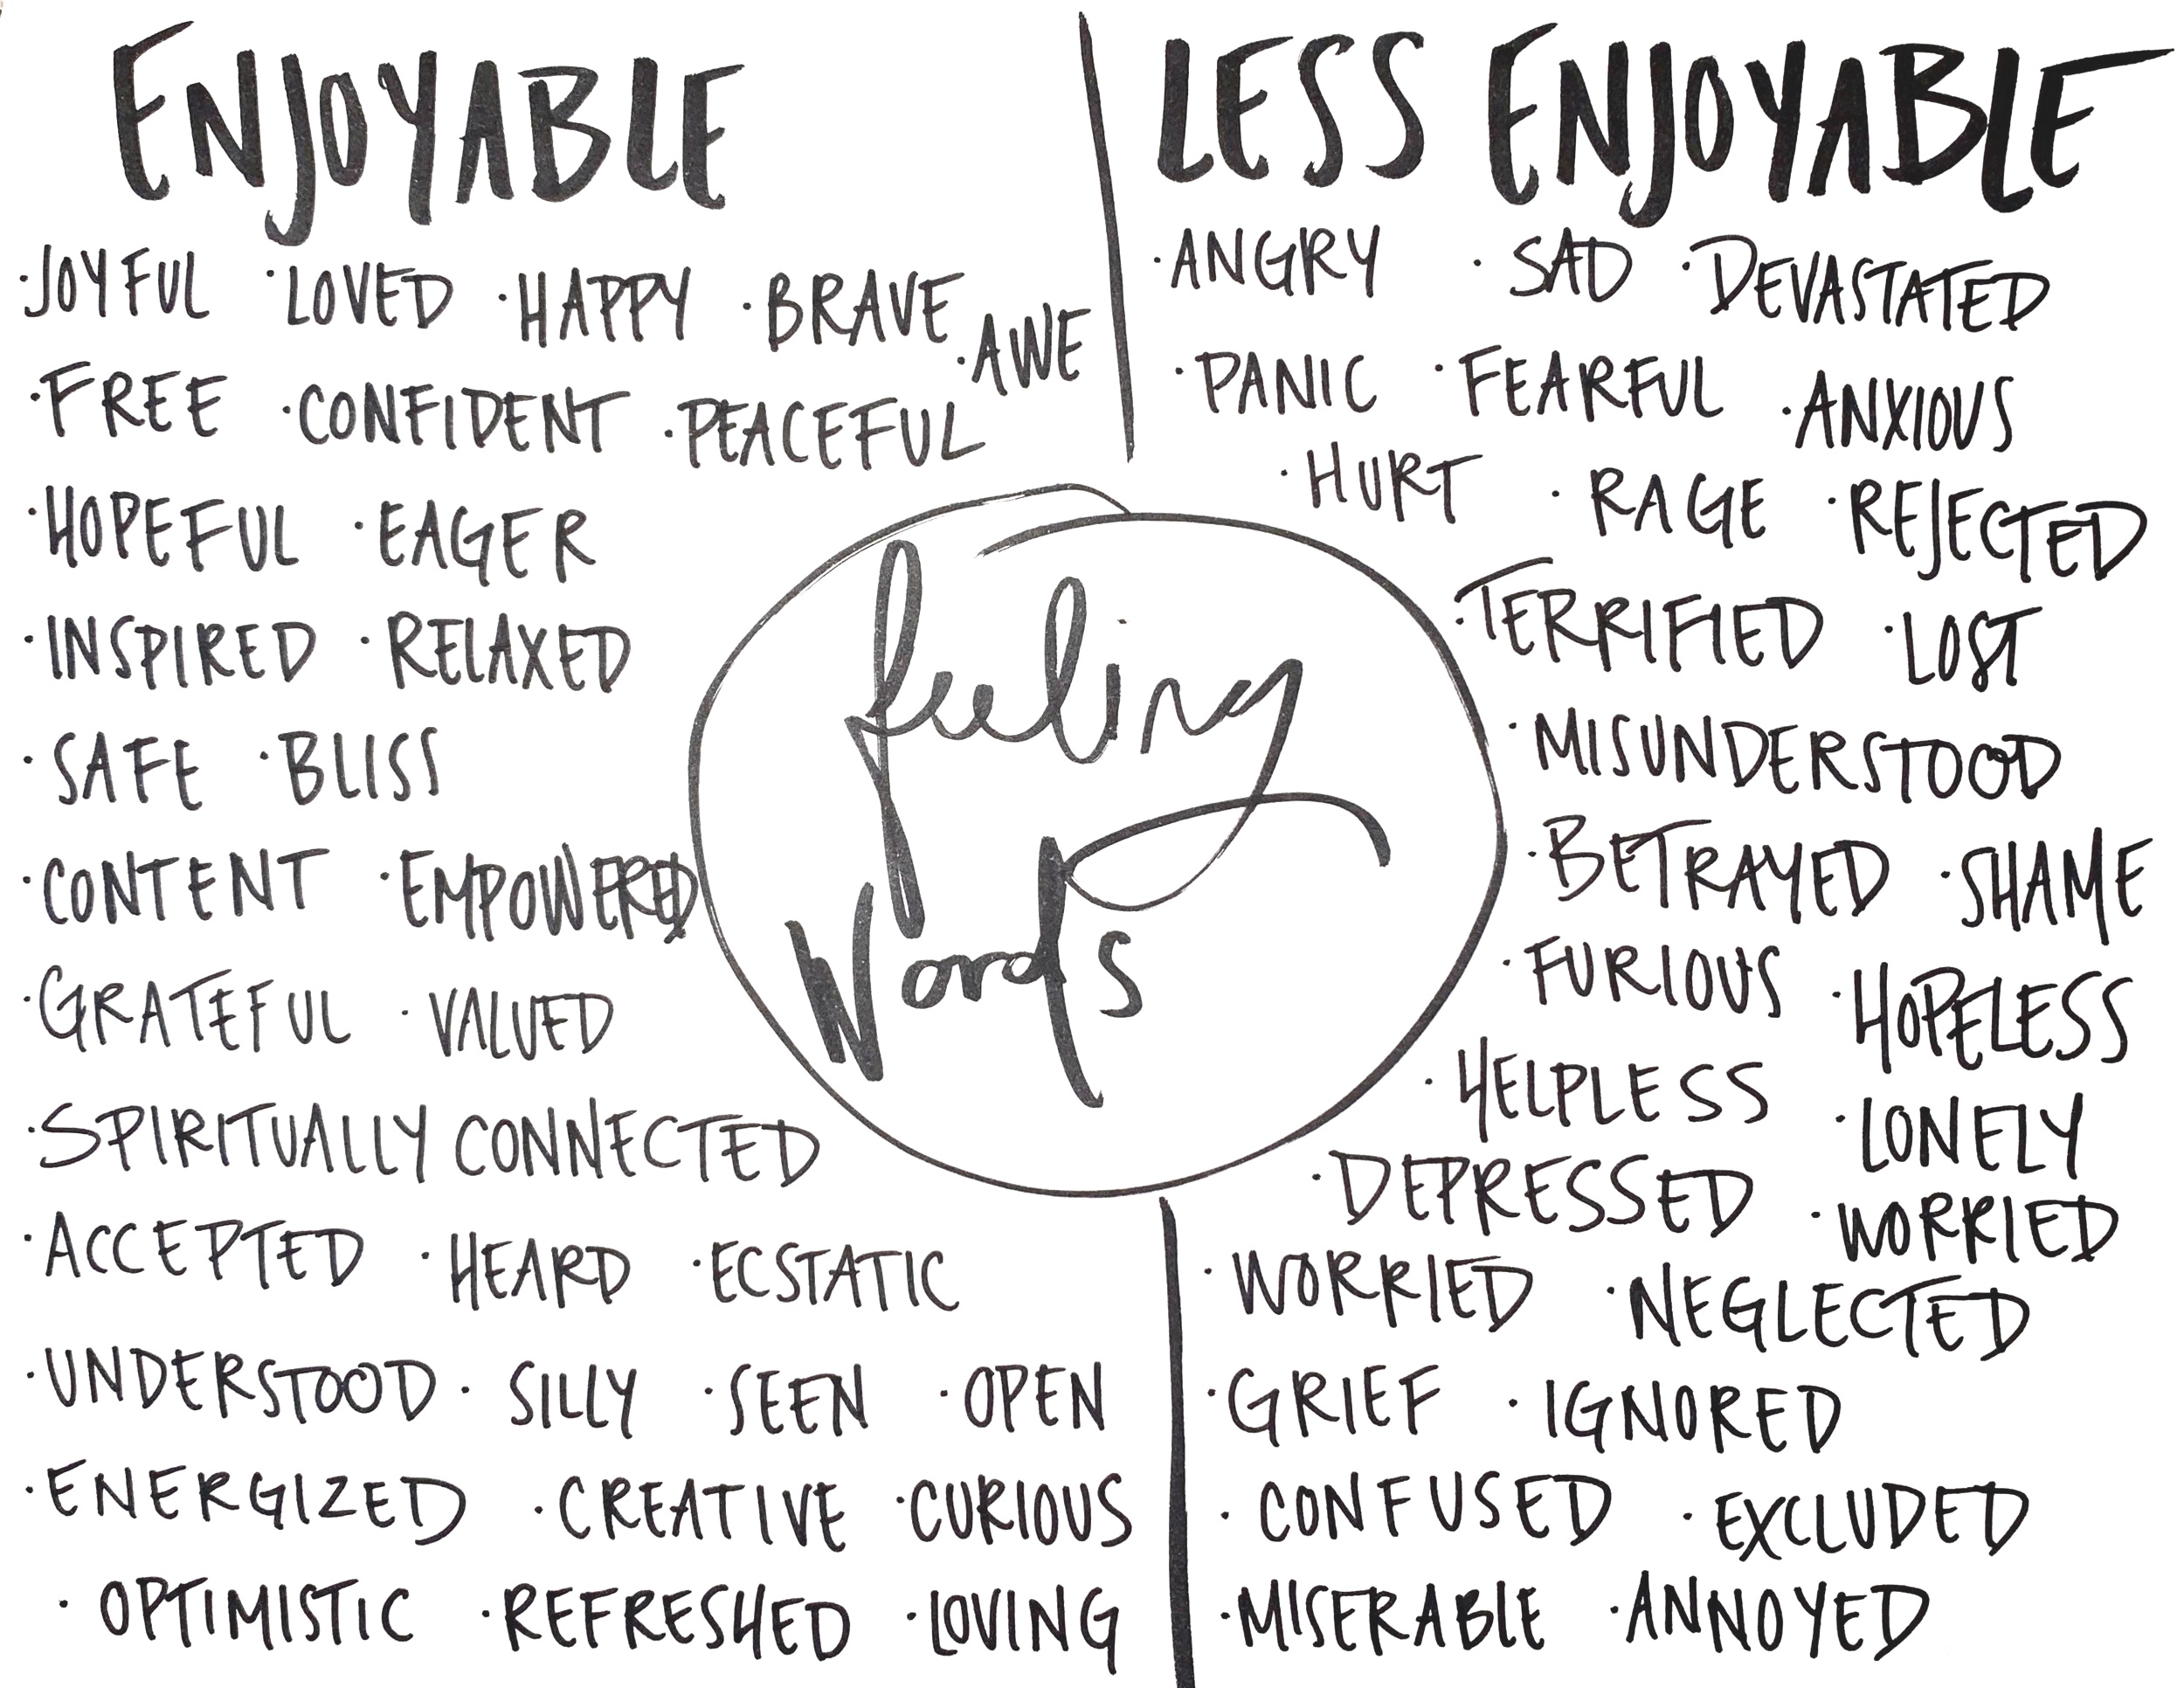 ENJOYABLE
·JOYFUL ·LOVED ·HAPPY ·BRAVE ·AWE
·FREE ·CONFIDENT ·PEACEFUL
·HOPEFUL ·EAGER
·INSPIRED ·RELAXED
·SAFE ·BLISS
·CONTENT ·EMPOWERED
·GRATEFUL ·VALUED
·SPIRITUALLY CONNECTED
·ACCEPTED ·HEARD ·ECSTATIC
·UNDERSTOOD ·SILLY ·SEEN ·OPEN
·ENERGIZED ·CREATIVE ·CURIOUS
·OPTIMISTIC ·REFRESHED ·LOVING
feeling
Words
LESS ENJOYABLE
·ANGRY ·SAD ·DEVASTATED
·PANIC ·FEARFUL ·ANXIOUS
·HURT ·RAGE ·REJECTED
·TERRIFIED ·LOST
·MISUNDERSTOOD
·BETRAYED ·SHAME
·FURIOUS ·HOPELESS
·HELPLESS ·LONELY
·DEPRESSED ·WORRIED
·WORRIED ·NEGLECTED
·GRIEF ·IGNORED
·CONFUSED ·EXCLUDED
·MISERABLE ·ANNOYED